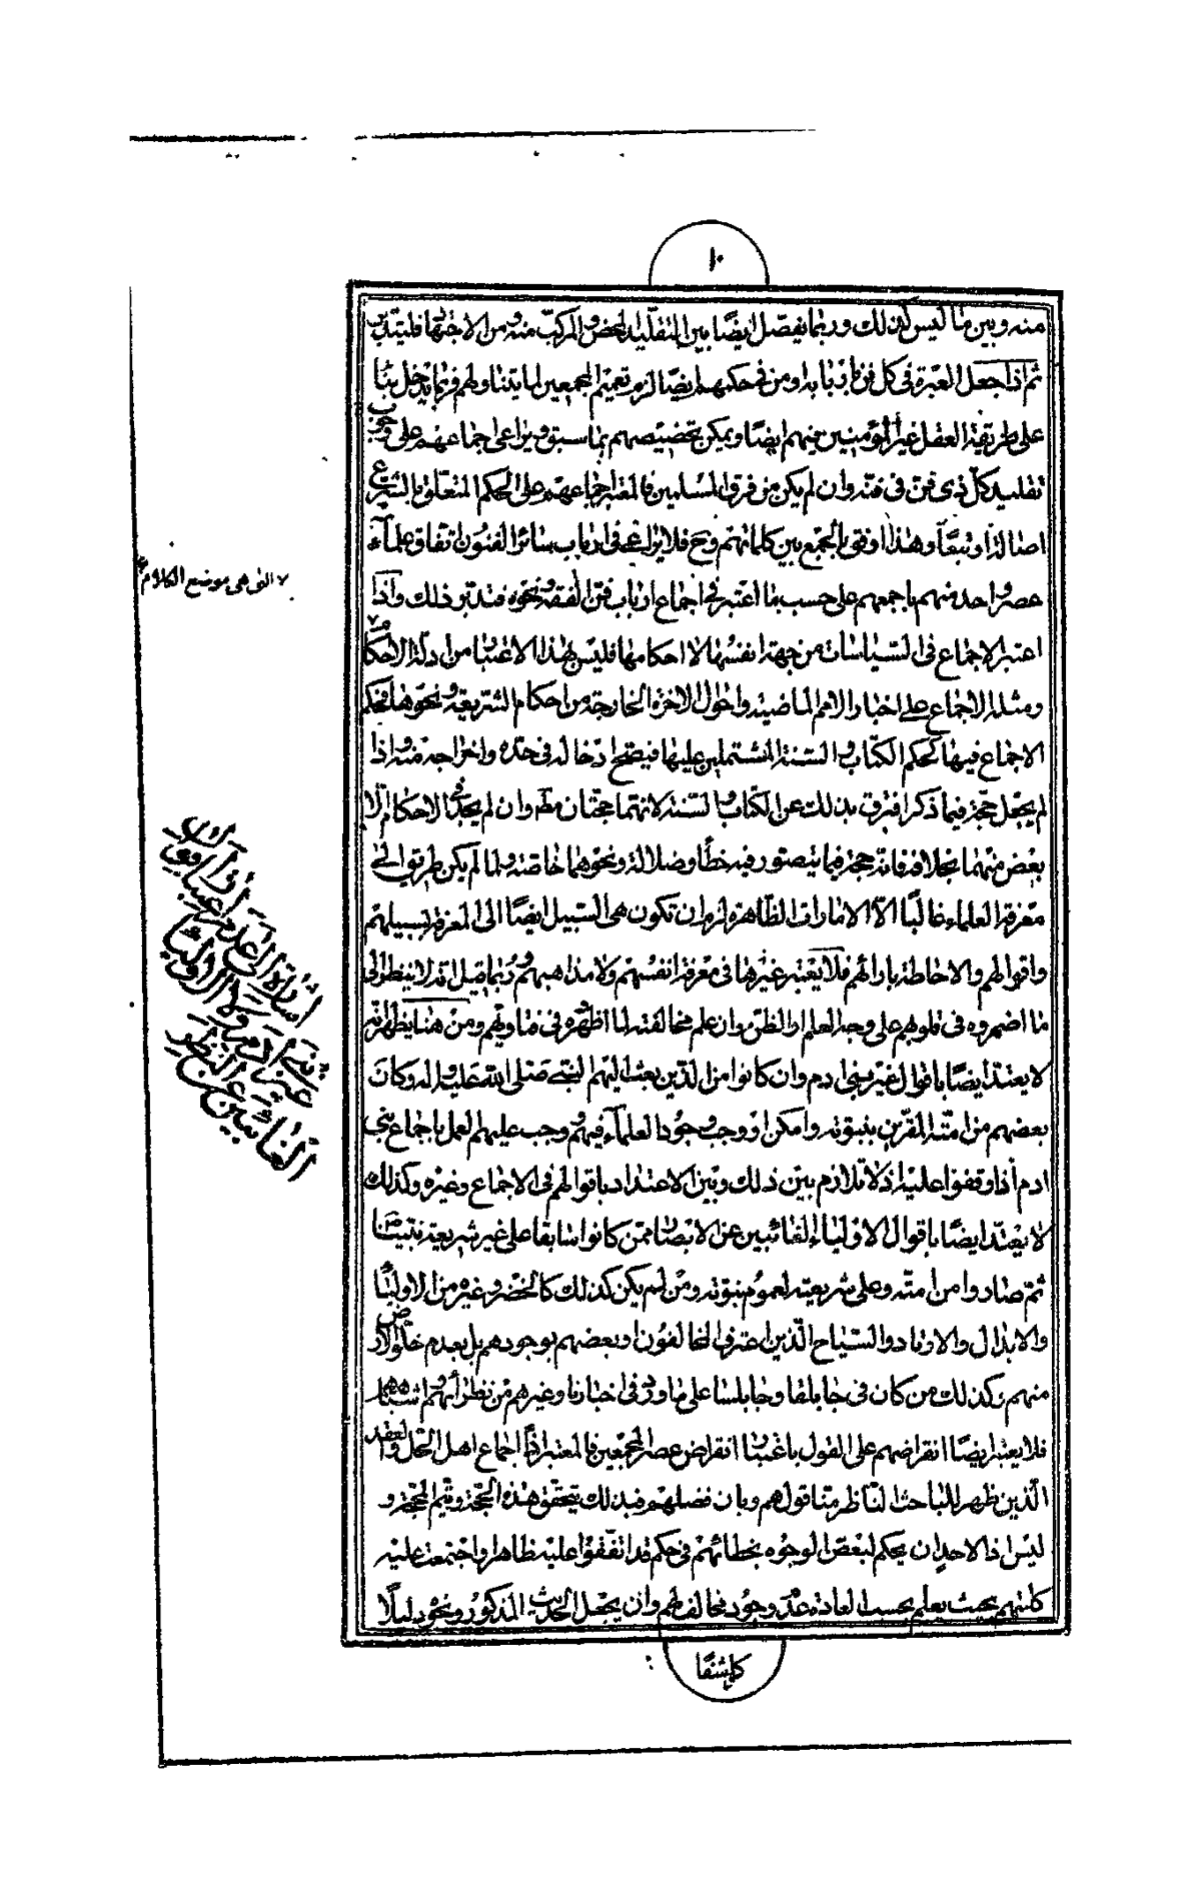 ١٠
منه وبين ما ليس كذلك وربما يفصل ايضًا بين التقليد المحض والمركب منه ومن الاجتهاد فليتدبر
ثم اذا جعل العبرة في كل فن بارباب به ومن في حكمهم ايضًا لزم تعميم المجمعين لما يتناولهم فربما يدخل بناء
على طريقة العقل غير المؤمنين منهم ايضًا ويمكن تخصيصهم بما سبق ويراعى اجماعهم على وجوب
تقليد كل ذى فن في فنه وان لم يكن من فرق المسلمين فالمعتبر اجماعهم على الحكم المتعلق بالشرع
اصالة او تبعًا وهذا اوفق بالجمع بين كلماتهم وح فلا يراعى في ارباب سائر الفنون اتفاق علماء
عصر واحد منهم باجمعهم على حسب ما اعتبر في اجماع ارباب فن الفقه ونحوه فتدبر ذلك واذا
اعتبر الاجماع في السياسات من جهة انفسها لا احكامها فليس بهذا الاعتبار من ادلة الاحكام
ومثله الاجماع على اخبار الامم الماضية واحوال الاخرة الخارجة من احكام الشريعة ونحوها فحكم
الاجماع فيها كحكم الكتاب والسنة المشتملين عليها فيصح ادخاله في حده واخراجه منه واذا
لم يجعل حجة فيما ذكر افترق بذلك عن الكتاب والسنة لانهما حجتان مطلقا وان لم يجد في الاحكام الا
بعض منهما بخلافه فانه حجة فيما يتصور فيه خطأ وضلالة ونحوهما خاصة ولما لم يكن طريق الى
معرفة العلماء غالبًا الا الامارات الظاهرة لزم ان تكون هى السبيل ايضًا الى المعرفة بسبيلهم
واقوالهم والاحاطة بارائهم فلا يعتبر غيرها في معرفة انفسهم ولا مذاهبهم وربما قيل انه لا ينظر الى
ما اضمروه في قلوبهم على وجه العلم او الظن وان علم مخالفته لما اظهره في فتاويهم ومن هنا يظهر انه
لا يعتد ايضًا باقوال غير بنى ادم وان كانوا من الذين بعث اليهم النبي صلى الله عليه واله وكان
بعضهم من امته المقرين بنبوته وامكن او وجب وجود العلماء فيهم ووجب عليهم العمل باجماع بنى
ادم اذا وقفوا عليه اذ لا تلازم بين ذلك وبين الاعتداد باقوالهم في الاجماع وغيره وكذلك
لا يعتد ايضًا باقوال الاولياء الغائبين عن الابصار ممن كانوا سابقا على غير شريعة نبينا
ثم صاروا من امته وعلى شريعته لعموم نبوته ومن لم يكن كذلك كالخضر وغيره من الاولياء
والابدال والاوتاد والسياح الذين اعترف المخالفون او بعضهم بوجودهم بل بعدم خلو الارض
منهم وكذلك من كان في جابلقا وجابلسا على ما ورد في اخبارنا وغيرهم من نظرائهم واشباههم
فلا يعتبر ايضًا انقراضهم على القول باعتبار انقراض عصر المجمعين فالمعتبر اذًا اجماع اهل الحل والعقد
الذين ظهر للباحث الناظر منا قولهم وبان فضلهم فبذلك يتحقق هذه الحجة وقيم المحجة و
ليس اذ الاحد ان يحكم لبعض الوجوه بخطائهم في حكم قد اتفقوا عليه ظاهرا واجتمعت عليه
كلمتهم بحيث يعلم بحسب العادة عدم وجود مخالف لهم وان يجعل الحديث المذكور ونحوه دليلًا
كاشفًا
التى هى موضع الكلام
الغائبين عن النظر